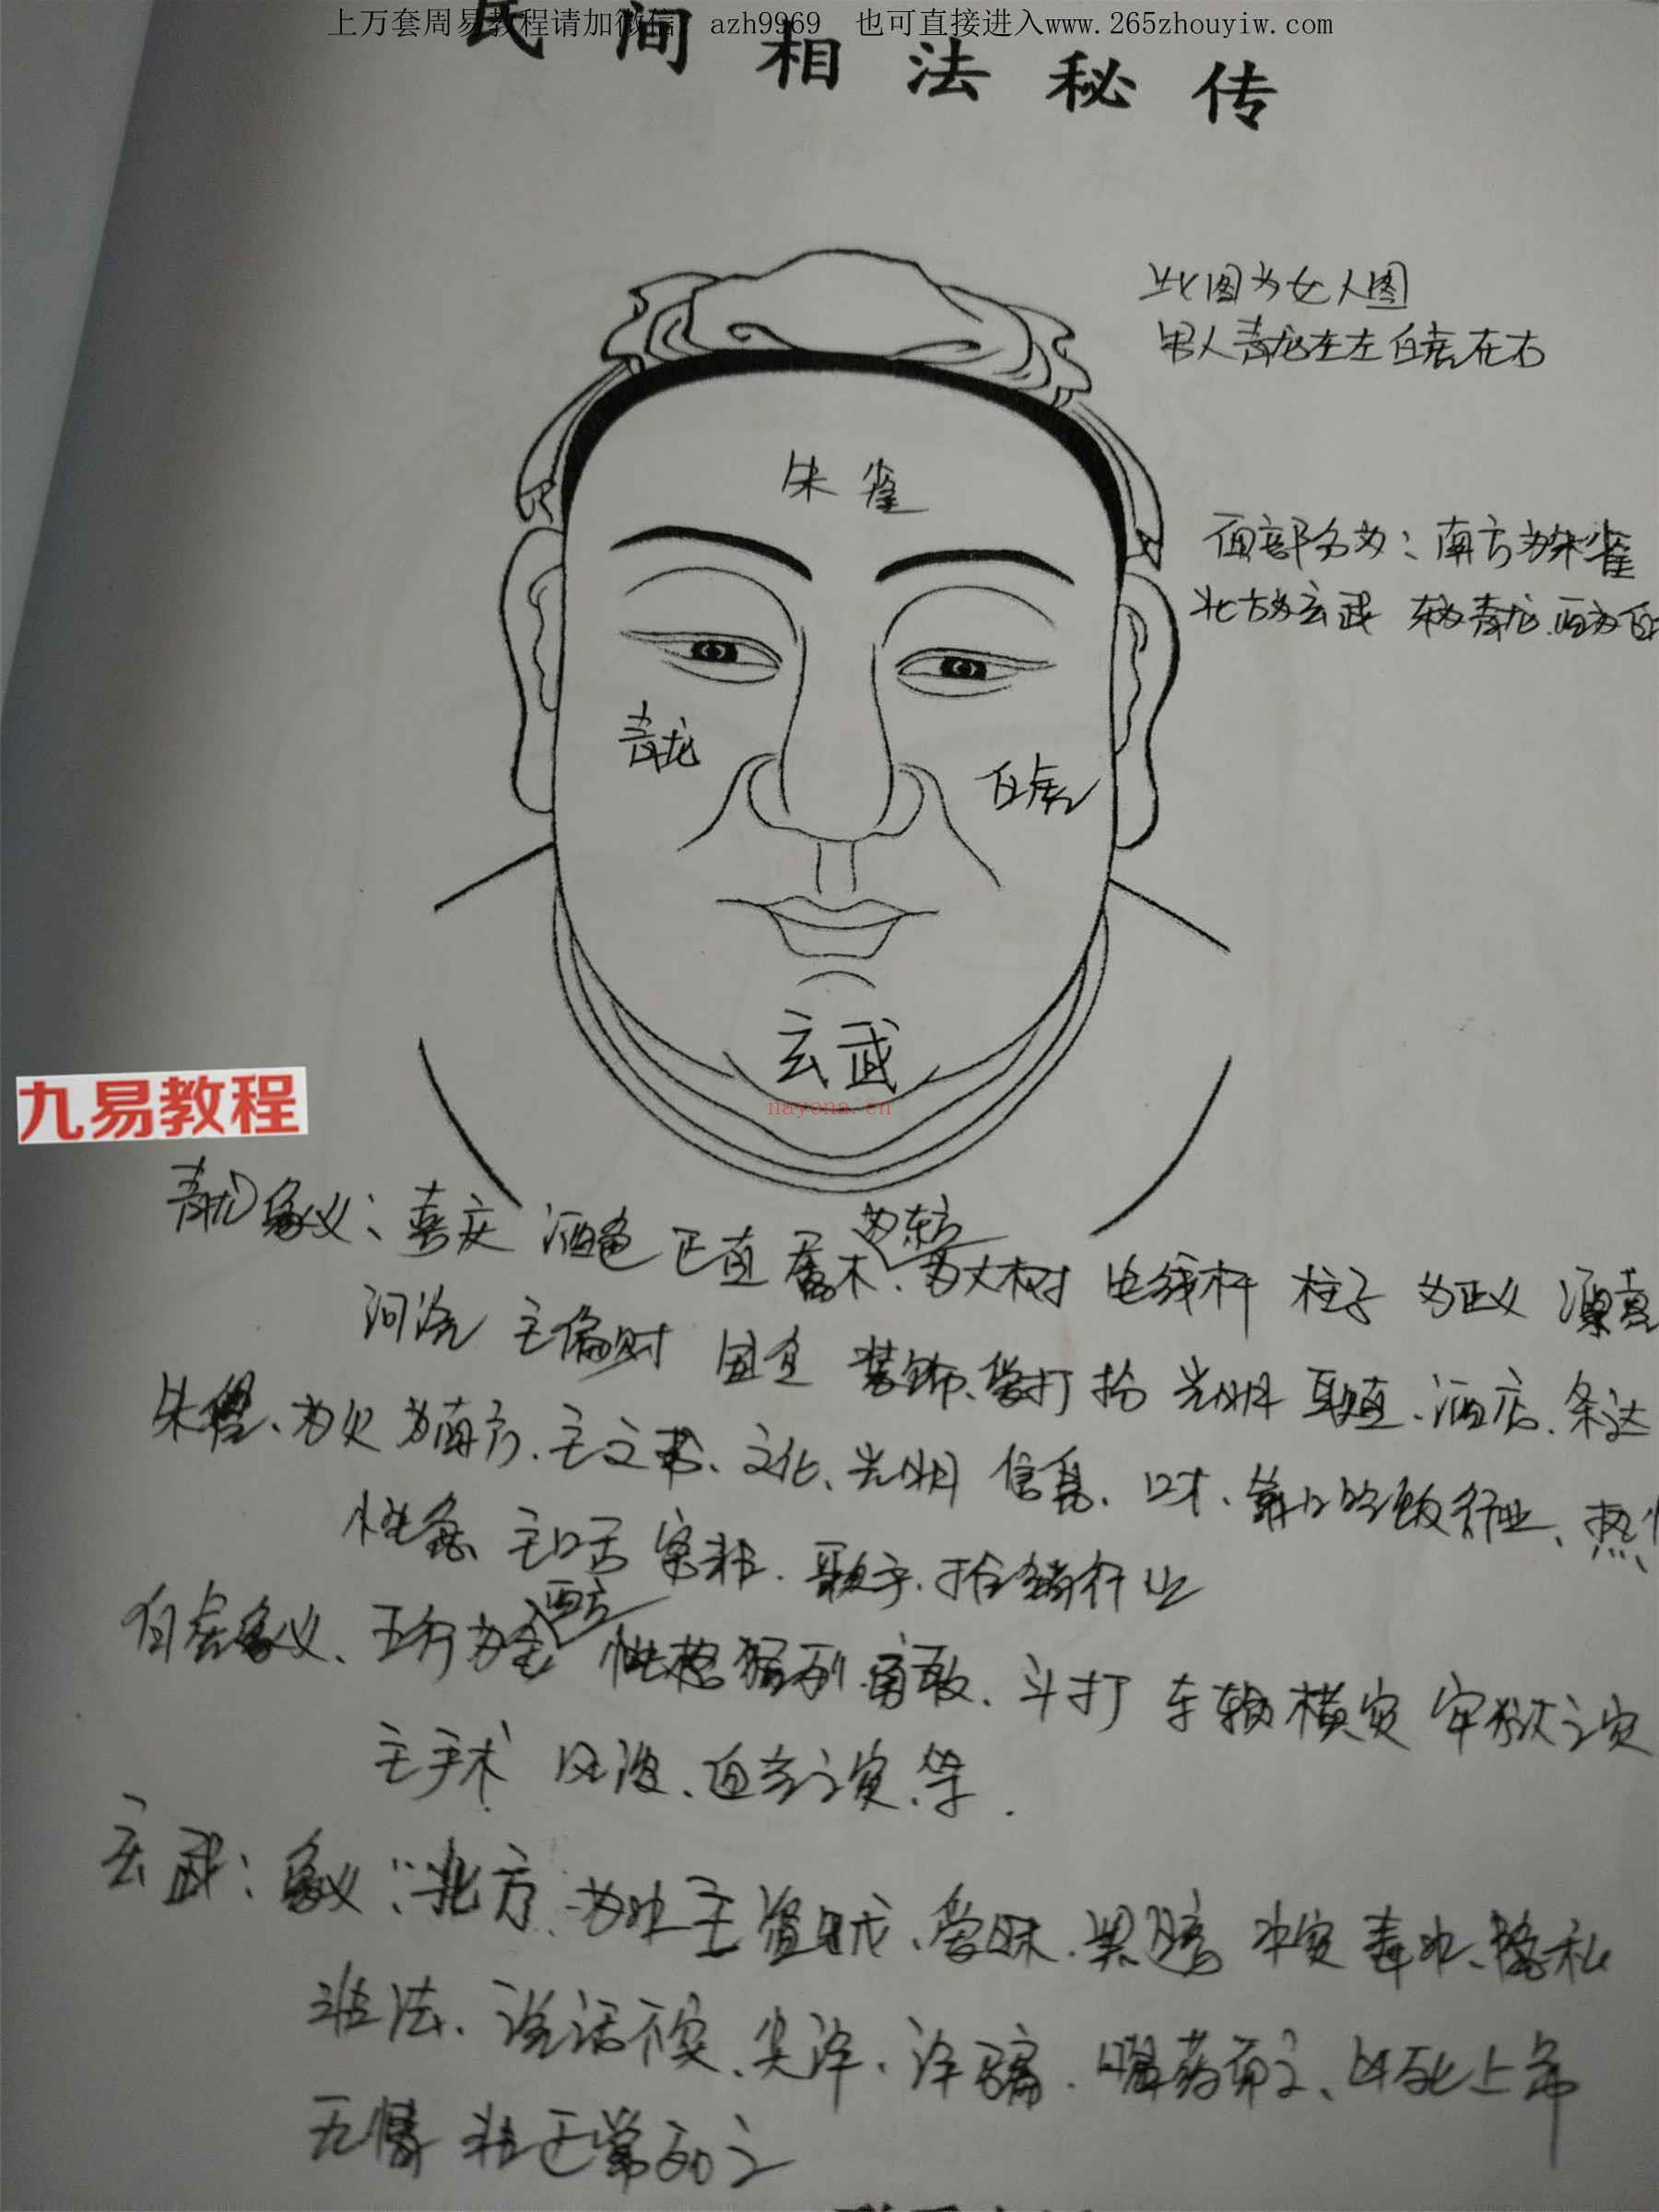 上万套周易教程请加微信 azh9969 也可直接进入www.265zhouyiw.com
民间相法秘传
此图为女人图
男人青龙在左白虎在右
朱雀
面部分为：南方为朱雀
北方为玄武 东为青龙.西为白
青龙
白虎
玄武
nayona.cn
九易教程
青龙象义：喜庆 酒色 正直 属木、为大树 电线杆 柱子 为正义
为东方
河流 主偏财 固定 装饰、爱打扮 光明 耿直、酒店、条达
朱雀、为火 为南方、主文书、文化、光明 信息、口才、靠口 行业、热
性急 主口舌 官非、歌手、推销行业
白虎象义、五行为金 性格 烈.勇敢、斗打 车祸横灾 牢狱之灾
西方
主手术 风波、血光之灾、等.
玄武：象义：北方、为水 主 爱昧、黑暗 水灾 毒水、隐私
非法、说话不实、尖诈、诈骗、喝药而亡、凶死上吊
无情 非正常死亡